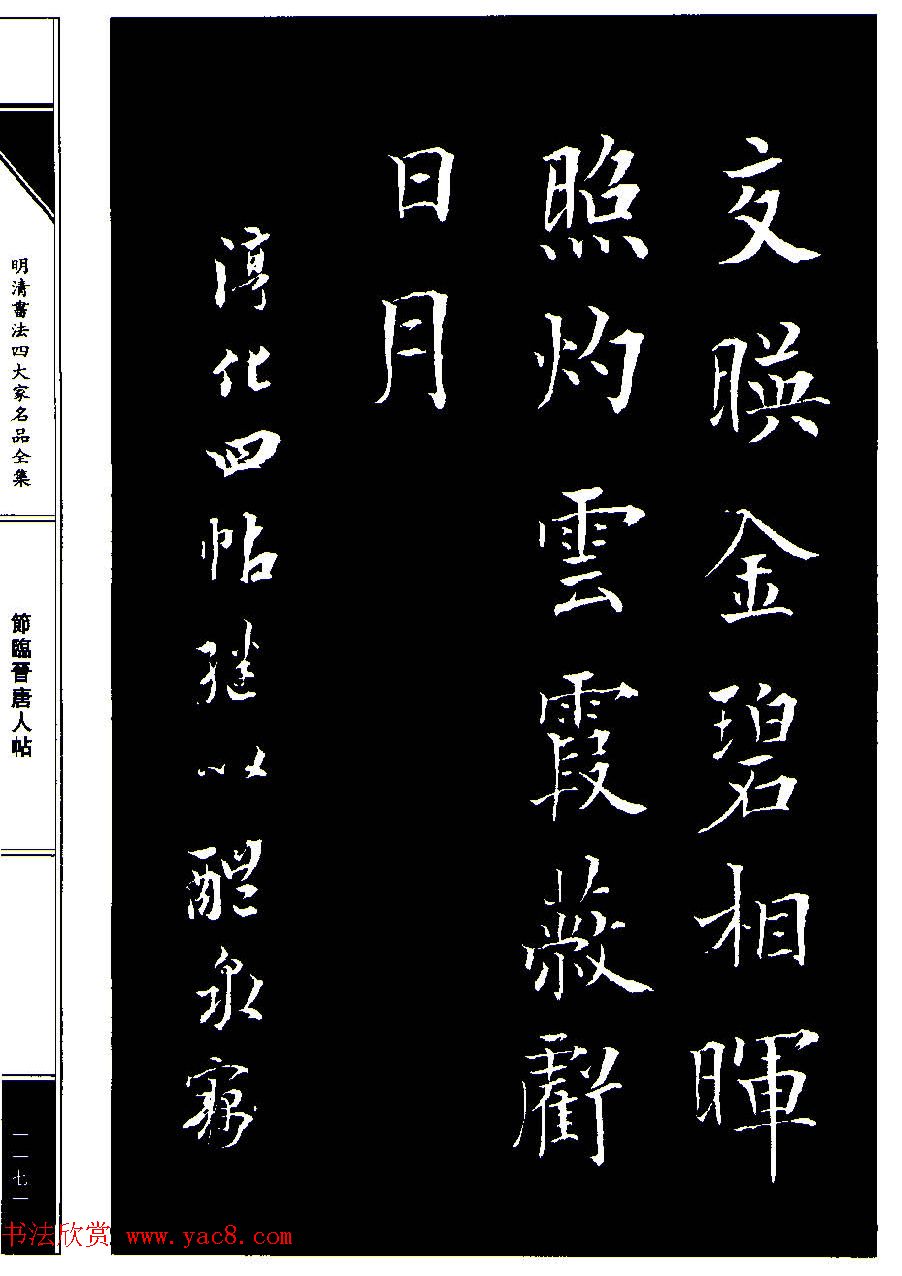 交暎金碧相暉
照灼雲霞蔽虧
日月
淳化四帖继以醴泉
明清書法四大家名品全集
節臨晉唐人帖
一一七一
书法欣赏 www.yac8.com